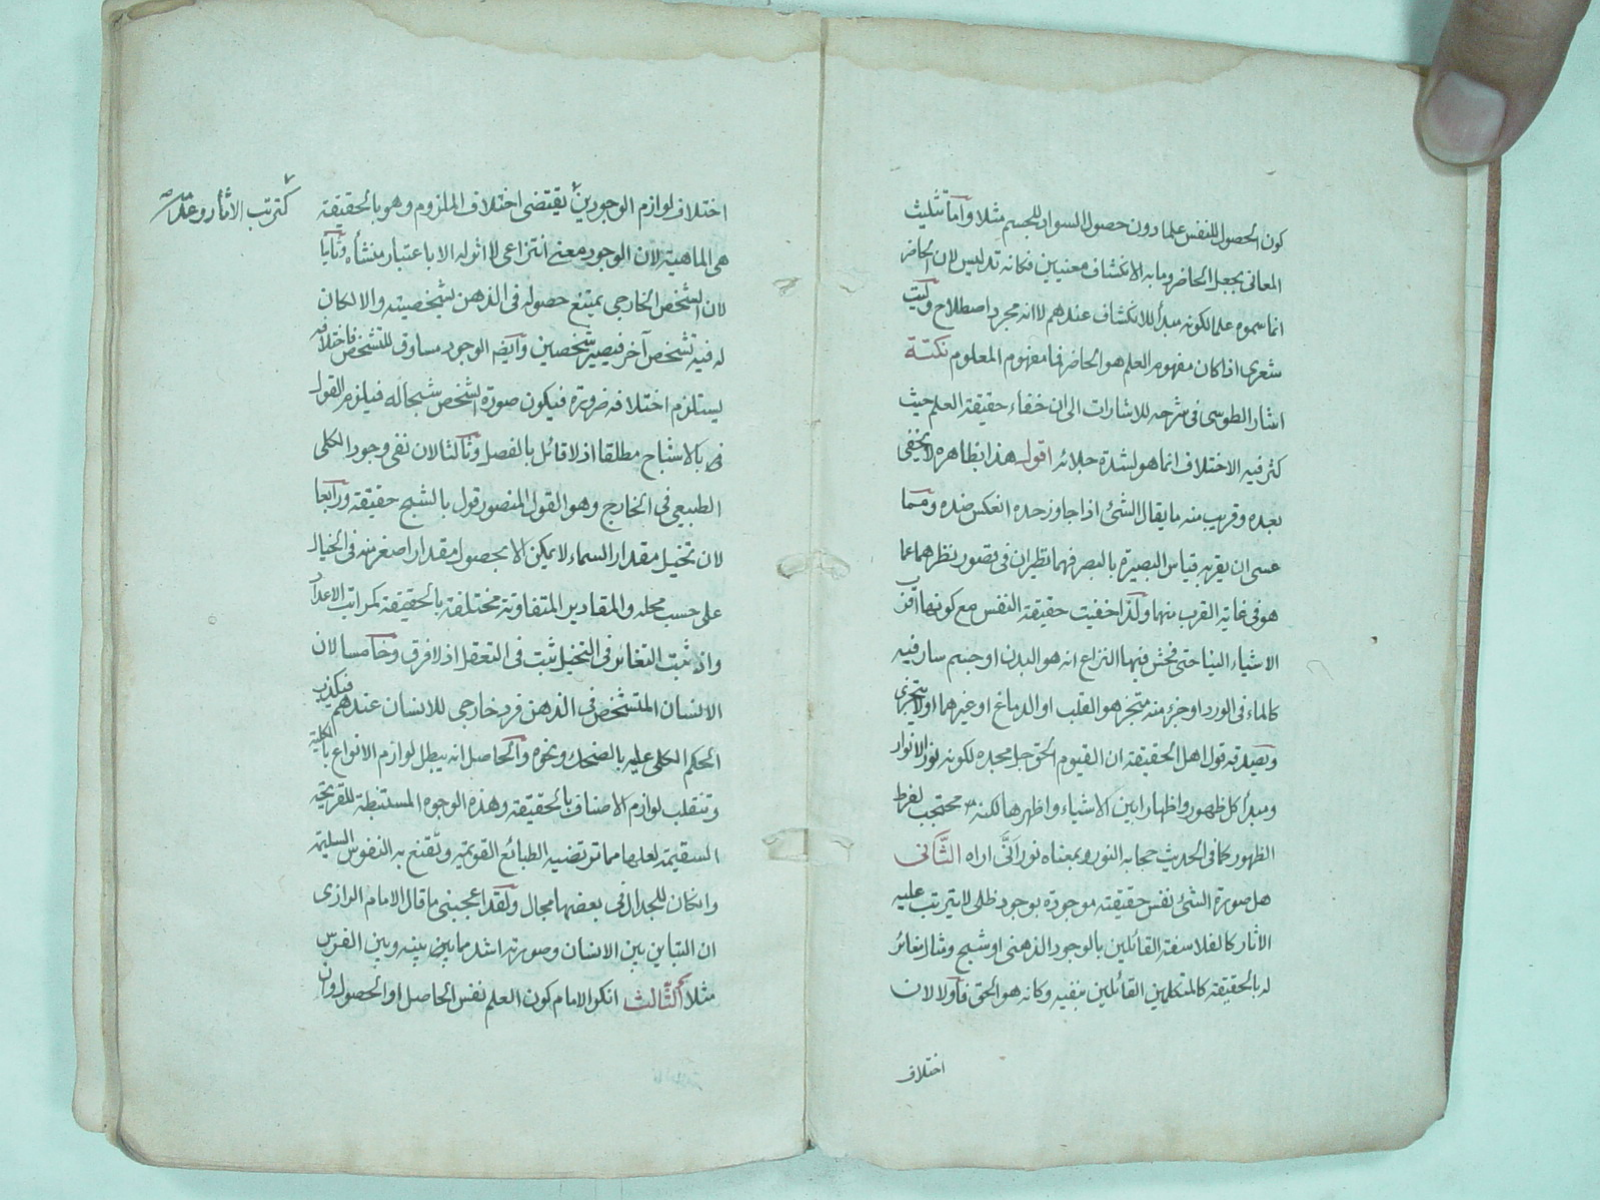 كون الحصول للنفس علما دون حصول السواد للجسم مثلا وآما تثليث
المعانى بجعل الحاضر وما به الانكشاف معنيين فكانه تدليس لان الحاضر
انما سموه علما لكونه مبدأ للانكشاف عندهم لا انه مجرد اصطلاح وليت
شعرى اذا كان مفهوم العلم هو الحاضر فما مفهوم المعلوم نكتة
اشار الطوسى فى شرحه للاشارات الى ان خفاء حقيقة العلم حيث
كثر فيه الاختلاف انما هو لشدة جلائه اقول هذا بظاهره لا يخفى
بعده وقريب منه ما يقال الشئ اذا جاوز حده انعكس ضده ومما
عسى ان يقربه قياس البصيرة بالبصر فهما نظيران فى قصور نظرهما عما
هو فى غاية القرب منها ولذا خفيت حقيقة النفس مع كونها اقرب
الاشياء الينا حتى فحش فيها النزاع انه هو البدن او جسم سار فيه
كالماء فى الورد او جزء منه متجز هو القلب او الدماغ او غيرهما او لا يتجزى
وتصدقه قول اهل الحقيقة ان القيوم الحق جل مجده لكونه نور الانوار
ومبدأ كل ظهور واظهار ابين الاشياء واظهرها لكنه محتجب لفرط
الظهور كما فى الحديث حجابه النور وبمعناه نور انى اراه الثانى
هل صورة الشئ نفس حقيقته موجودة بوجود ظلى لا يترتب عليه
الآثار كالفلاسفة القائلين بالوجود الذهنى او شبح ومثال مغائر
له بالحقيقة كالمتكلمين القائلين بنفيه وكانه هو الحق فاولا لان
اختلاف
اختلاف لوازم الوجودين يقتضى اختلاف الملزوم وهو بالحقيقة
كترتب الاثار وعدمه
هى الماهية لان الوجود معنى انتزاعى لا اثر له الا باعتبار منشأه وثانيا
لان الشخص الخارجى يمتنع حصوله فى الذهن بشخصيته والا لكان
له فيه تشخص آخر فيصير شخصين وايضم الوجود مساوق للتشخص فاختلافه
يستلزم اختلافه ضرورة فيكون صورة الشخص شبحا له فيلزم القول
بالاشباح مطلقا اذ لا قائل بالفصل وثالثا لان نفى وجود الكلى
الطبيعى فى الخارج وهو القول المنصور قول بالشبح حقيقة ورابعا
لان تخيل مقدار السماء لا يمكن الا بحصول مقدار اصغر منه فى الخيال
على حسب محله والمقادير المتفاوتة مختلفة بالحقيقة كمراتب الاعداد
واذ ثبت التغائر فى التخيل ثبت فى التعقل اذ لا فرق وخامسا لان
الانسان المتشخص فى الذهن فرد خارجى للانسان عندهم فيكذب
الحكم الكلى عليه بالضحك ونحوه والحاصل انه يبطل لوازم الانواع بالكلية
وتنقلب لوازم الاصناف بالحقيقة وهذه الوجوه المستنبطة للقريحة
السقيمة لعلها مما ترتضيه الطبائع القويمة وتقنع به النفوس السليمة
وان كان للجدال فى بعضها مجال ولقد اعجبنى ما قال الامام الرازى
ان التباين بين الانسان وصورته اشد مما بين بينه وبين الفرس
مثلا الثالث انكر الامام كون العلم نفس الحاصل او الحصول وان